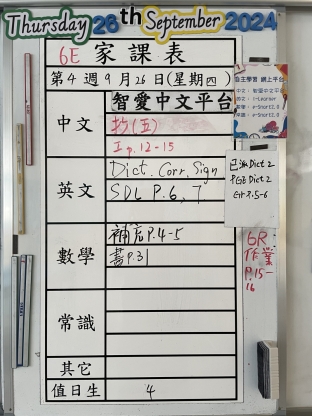 Thursday 26th September 2024
6E 家課表
第4週9月26日(星期四)
中文
智愛中文平台
抄(五)
工p.12-15
英文
Dict. Corr. Sign
SDL P.6, 7
數學
補充P.4-5
書P.31
常識
其它
值日生
4
自主學習 網上平台
中文：智愛中文平台
已派Dict 2
P.6-7 6R
作業
P.15-
16